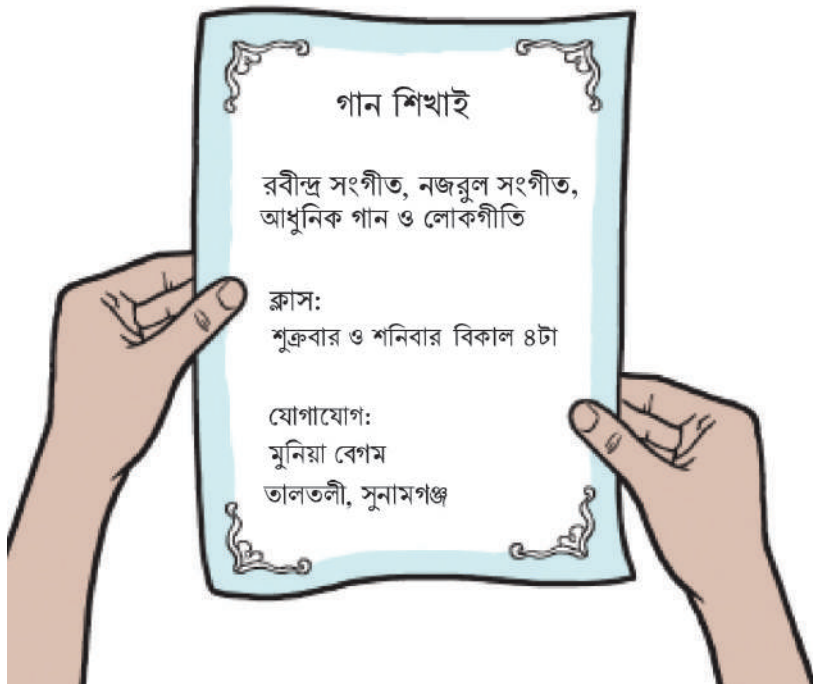 গান শিখাই
রবীন্দ্র সংগীত, নজরুল সংগীত,
আধুনিক গান ও লোকগীতি
ক্লাস:
শুক্রবার ও শনিবার বিকাল ৪টা
যোগাযোগ:
মুনিয়া বেগম
তালতলী, সুনামগঞ্জ